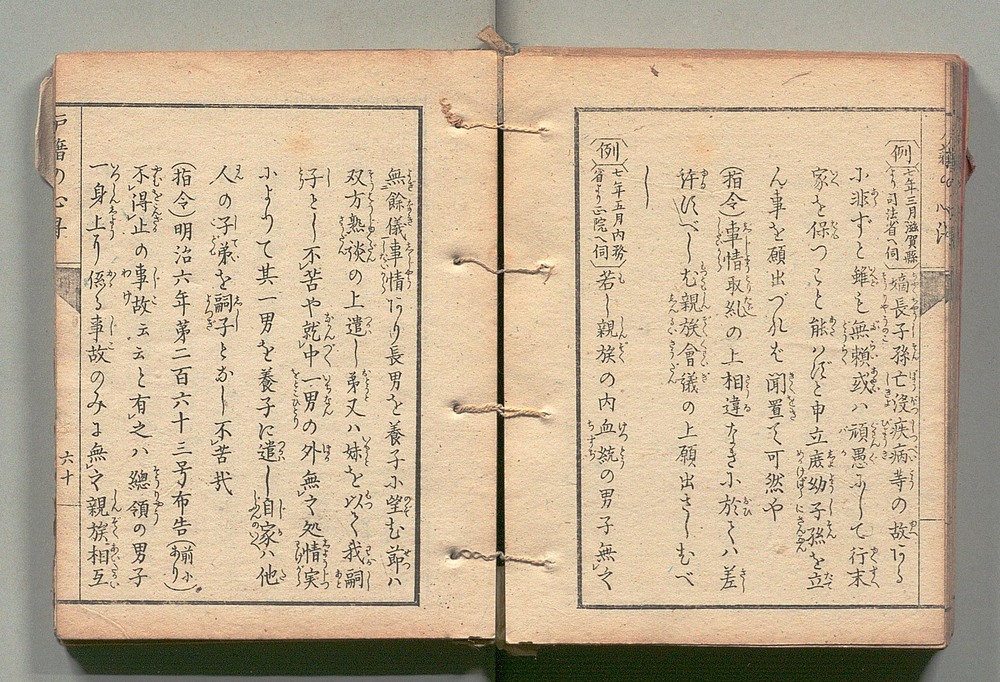 例 七年三月滋賀縣より司法省へ伺 嫡長子孫亡没疾病等の故なる
に非ずと雖も無頼或ハ頑愚にして行末
家を保つこと能はずと申立庶幼子孫を立
ん事を願出づれば聞置て可然や
(指令)事情取糺の上相違なきに於てハ差
許すべし尤親族會議の上願出さしむべ
し
例 七年五月内務省より正院へ伺 若し親族の内血統の男子無之
無餘儀事情なり長男を養子に望む節ハ
双方熟談の上遣し弟又ハ妹を以て我嗣
子とし不苦や就中一男の外無之処情実
によりて其一男を養子に遣し自家ハ他
人の子弟を嗣子となし不苦哉
(指令)明治六年第二百六十三号布告(前にあり)。
不得止の事故云云と有之ハ總領の男子
一身上り係る事故のみよ無之親族相互
戸籍の心得
六十